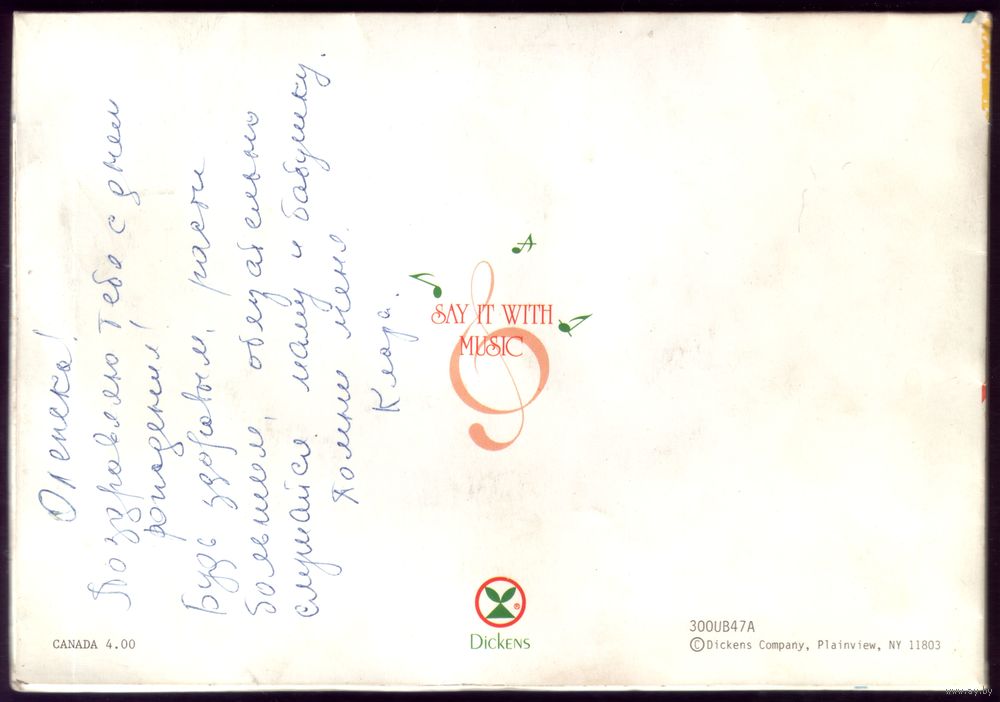 Оленека!
Поздравляю тебя с днем
рождения!
Будь здоровым, расти
большим, обязательно
слушайся маму и бабушку.
Помни меня.
Клара.
SAY IT WITH
MUSIC
DICKENS
®
CANADA 4.00
300UB47A
©Dickens Company, Plainview, NY 11803
www.ay.by